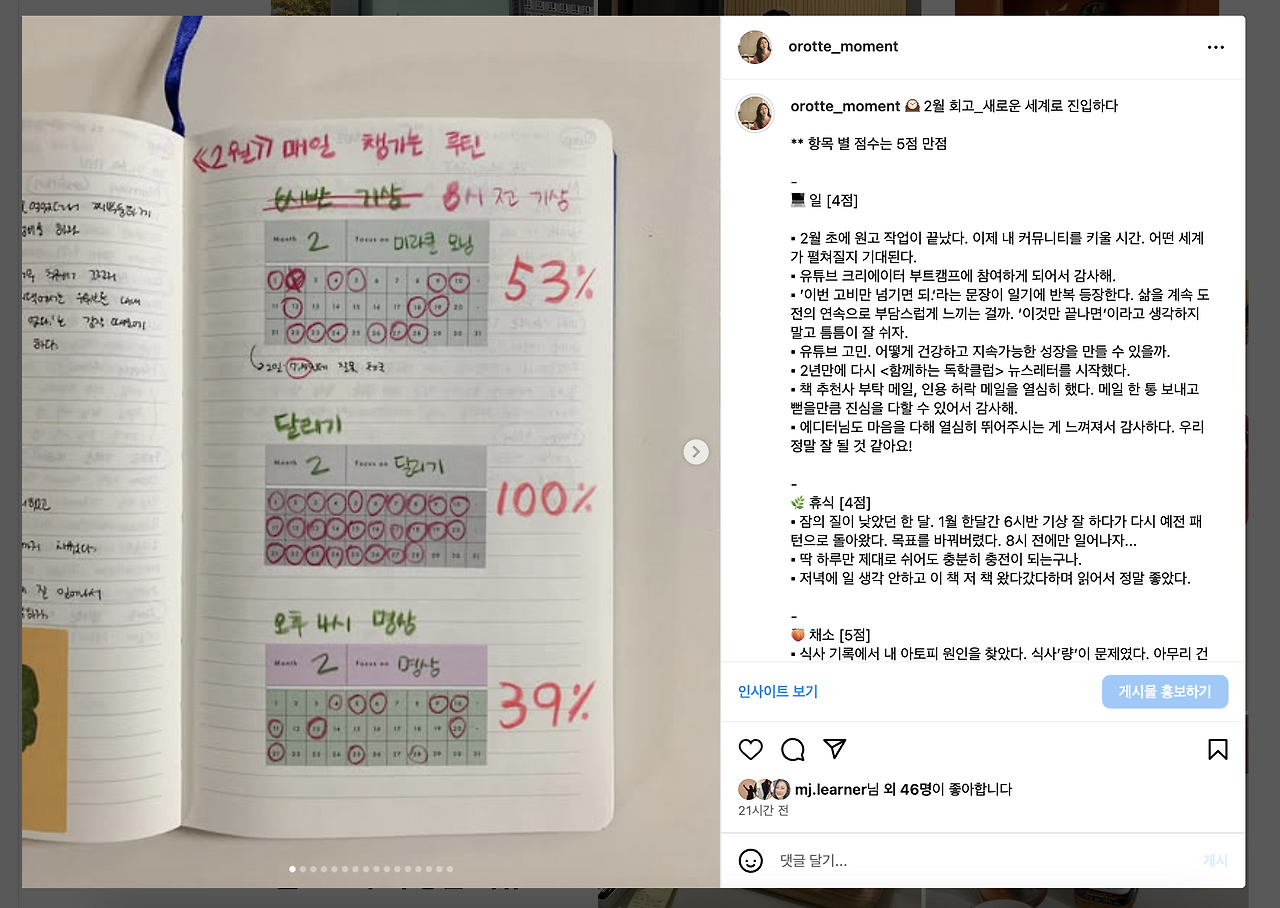 《2월》 매일 챙기는 루틴
6시반 기상 8시 전 기상
Month 2 Focus on 미라클 모닝
1 2 3 4 5 6 7 8 9 10
11 12 13 14 15 16 17 18 19 20
21 22 23 24 25 26 27 28 29 30 31
53%
달리기
Month 2 Focus on 달리기
1 2 3 4 5 6 7 8 9 10
11 12 13 14 15 16 17 18 19 20
21 22 23 24 25 26 27 28 29 30 31
100%
오후 4시 명상
Month 2 Focus on 명상
1 2 3 4 5 6 7 8 9 10
11 12 13 14 15 16 17 18 19 20
21 22 23 24 25 26 27 28 29 30 31
39%
orotte_moment
orotte_moment 🕰️ 2월 회고_새로운 세계로 진입하다
** 항목 별 점수는 5점 만점
-
💻 일 [4점]
▪ 2월 초에 원고 작업이 끝났다. 이제 내 커뮤니티를 키울 시간. 어떤 세계
가 펼쳐질지 기대된다.
▪ 유튜브 크리에이터 부트캠프에 참여하게 되어서 감사해.
▪ ‘이번 고비만 넘기면 되.’라는 문장이 일기에 반복 등장한다. 삶을 계속 도
전의 연속으로 부담스럽게 느끼는 걸까. ‘이것만 끝나면’이라고 생각하지
말고 틈틈이 잘 쉬자.
▪ 유튜브 고민. 어떻게 건강하고 지속가능한 성장을 만들 수 있을까.
▪ 2년만에 다시 <함께하는 독학클럽> 뉴스레터를 시작했다.
▪ 책 추천사 부탁 메일, 인용 허락 메일을 열심히 했다. 메일 한 통 보내고
뻗을만큼 진심을 다할 수 있어서 감사해.
▪ 에디터님도 마음을 다해 열심히 뛰어주시는 게 느껴져서 감사하다. 우리
정말 잘 될 것 같아요!
-
🌿 휴식 [4점]
▪ 잠의 질이 낮았던 한 달. 1월 한달간 6시반 기상 잘 하다가 다시 예전 패
턴으로 돌아왔다. 목표를 바꿔버렸다. 8시 전에만 일어나자...
▪ 딱 하루만 제대로 쉬어도 충분히 충전이 되는구나.
▪ 저녁에 일 생각 안하고 이 책 저 책 왔다갔다하며 읽어서 정말 좋았다.
-
🍑 채소 [5점]
▪ 식사 기록에서 내 아토피 원인을 찾았다. 식사’량’이 문제였다. 아무리 건
인사이트 보기
게시물 홍보하기
mj.learner님 외 46명이 좋아합니다
21시간 전
댓글 달기...
게시